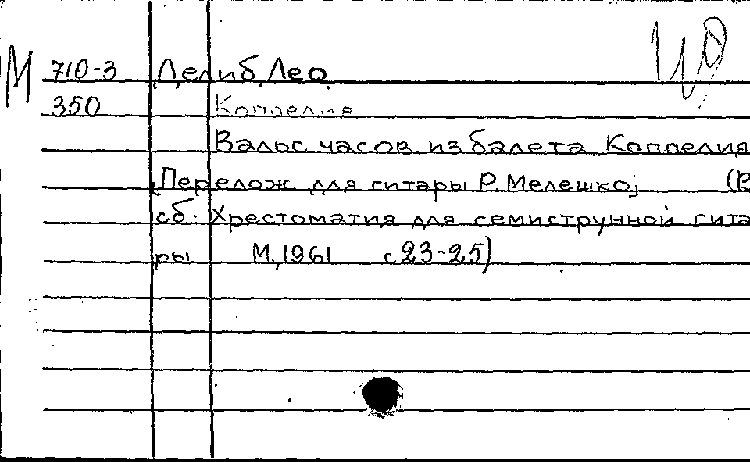 М 710-3 Делиб, Лео
350 Коппелия
Вальс часов из балета Коппелия
Перелож для гитары Р. Мелешко; (В
сб: Хрестоматия для семиструнной гита
ры М., 1961 с 23-25)